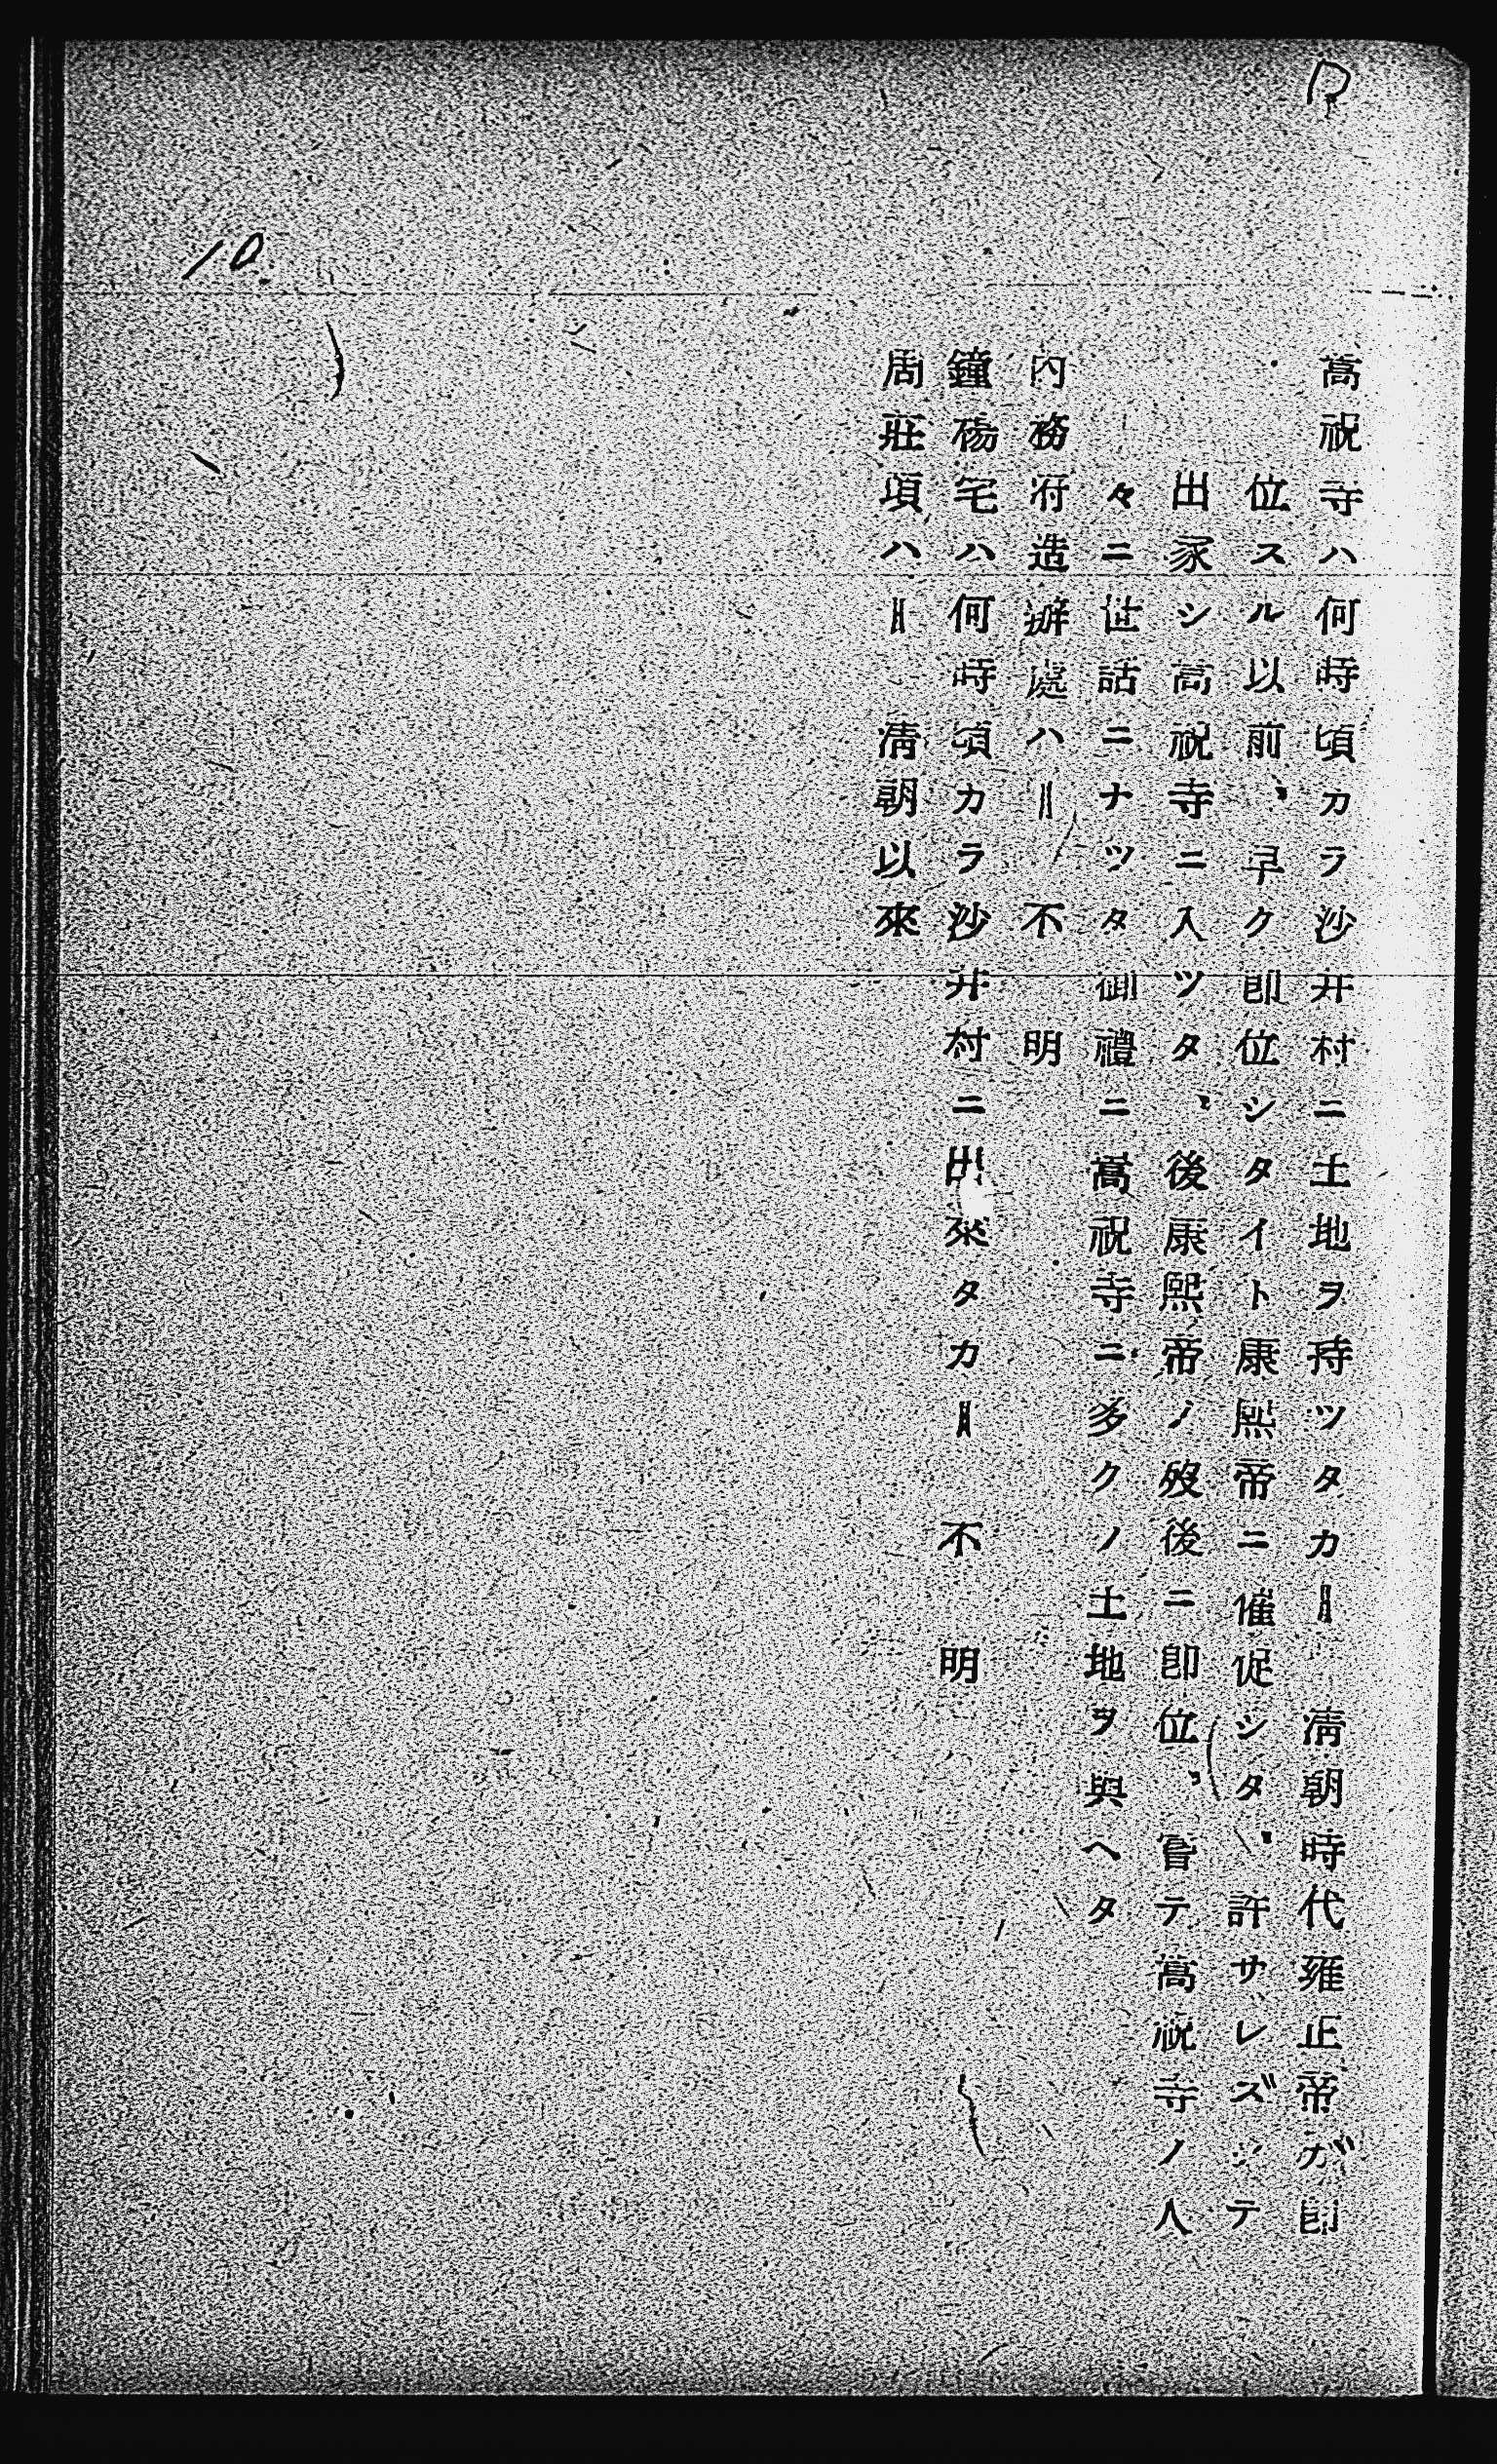 萬祝寺ハ何時頃カラ沙井村ニ土地ヲ持ツタカ＝　清朝時代雍正帝ガ卽
位スル以前、早ク卽位シタイト康熙帝ニ催促シタ、許サレズシテ
出家シ萬祝寺ニ入ツタ、後康熙帝ノ歿後ニ卽位、嘗テ萬祝寺ノ人
々ニ世話ニナツタ御禮ニ萬祝寺ニ多クノ土地ヲ與ヘタ
內務府造辦處ハ＝　不明
鐘楊宅ハ何時頃カラ沙井村ニ出來タカ＝　不明
周莊項ハ＝　清朝以來
10